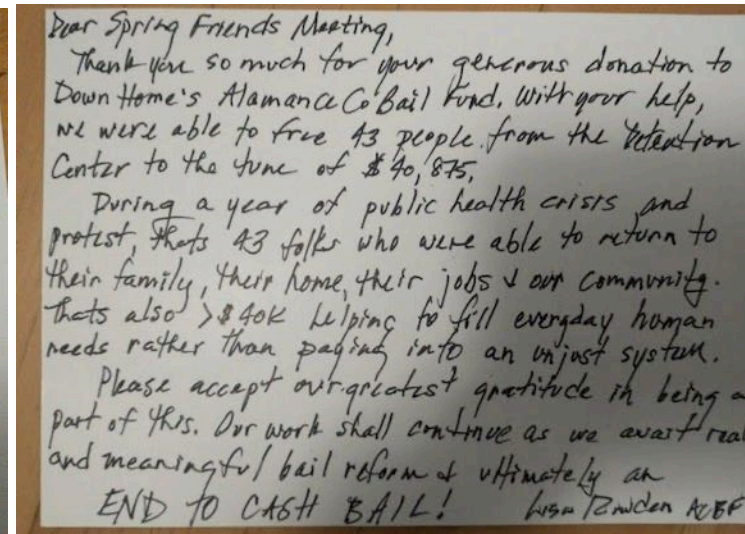 Dear Spring Friends Meeting,
Thank you so much for your generous donation to
Down Home's Alamance Co Bail Fund. With your help,
we were able to free 43 people from the Detention
Center to the tune of $40,875.
During a year of public health crisis and
protest, thats 43 folks who were able to return to
their family, their home, their jobs & our community.
Thats also >$40K helping to fill everyday human
needs rather than paying into an unjust system.
Please accept our greatest gratitude in being a
part of this. Our work shall continue as we await real
and meaningful bail reform & ultimately an
END TO CASH BAIL! Lisa ACBF